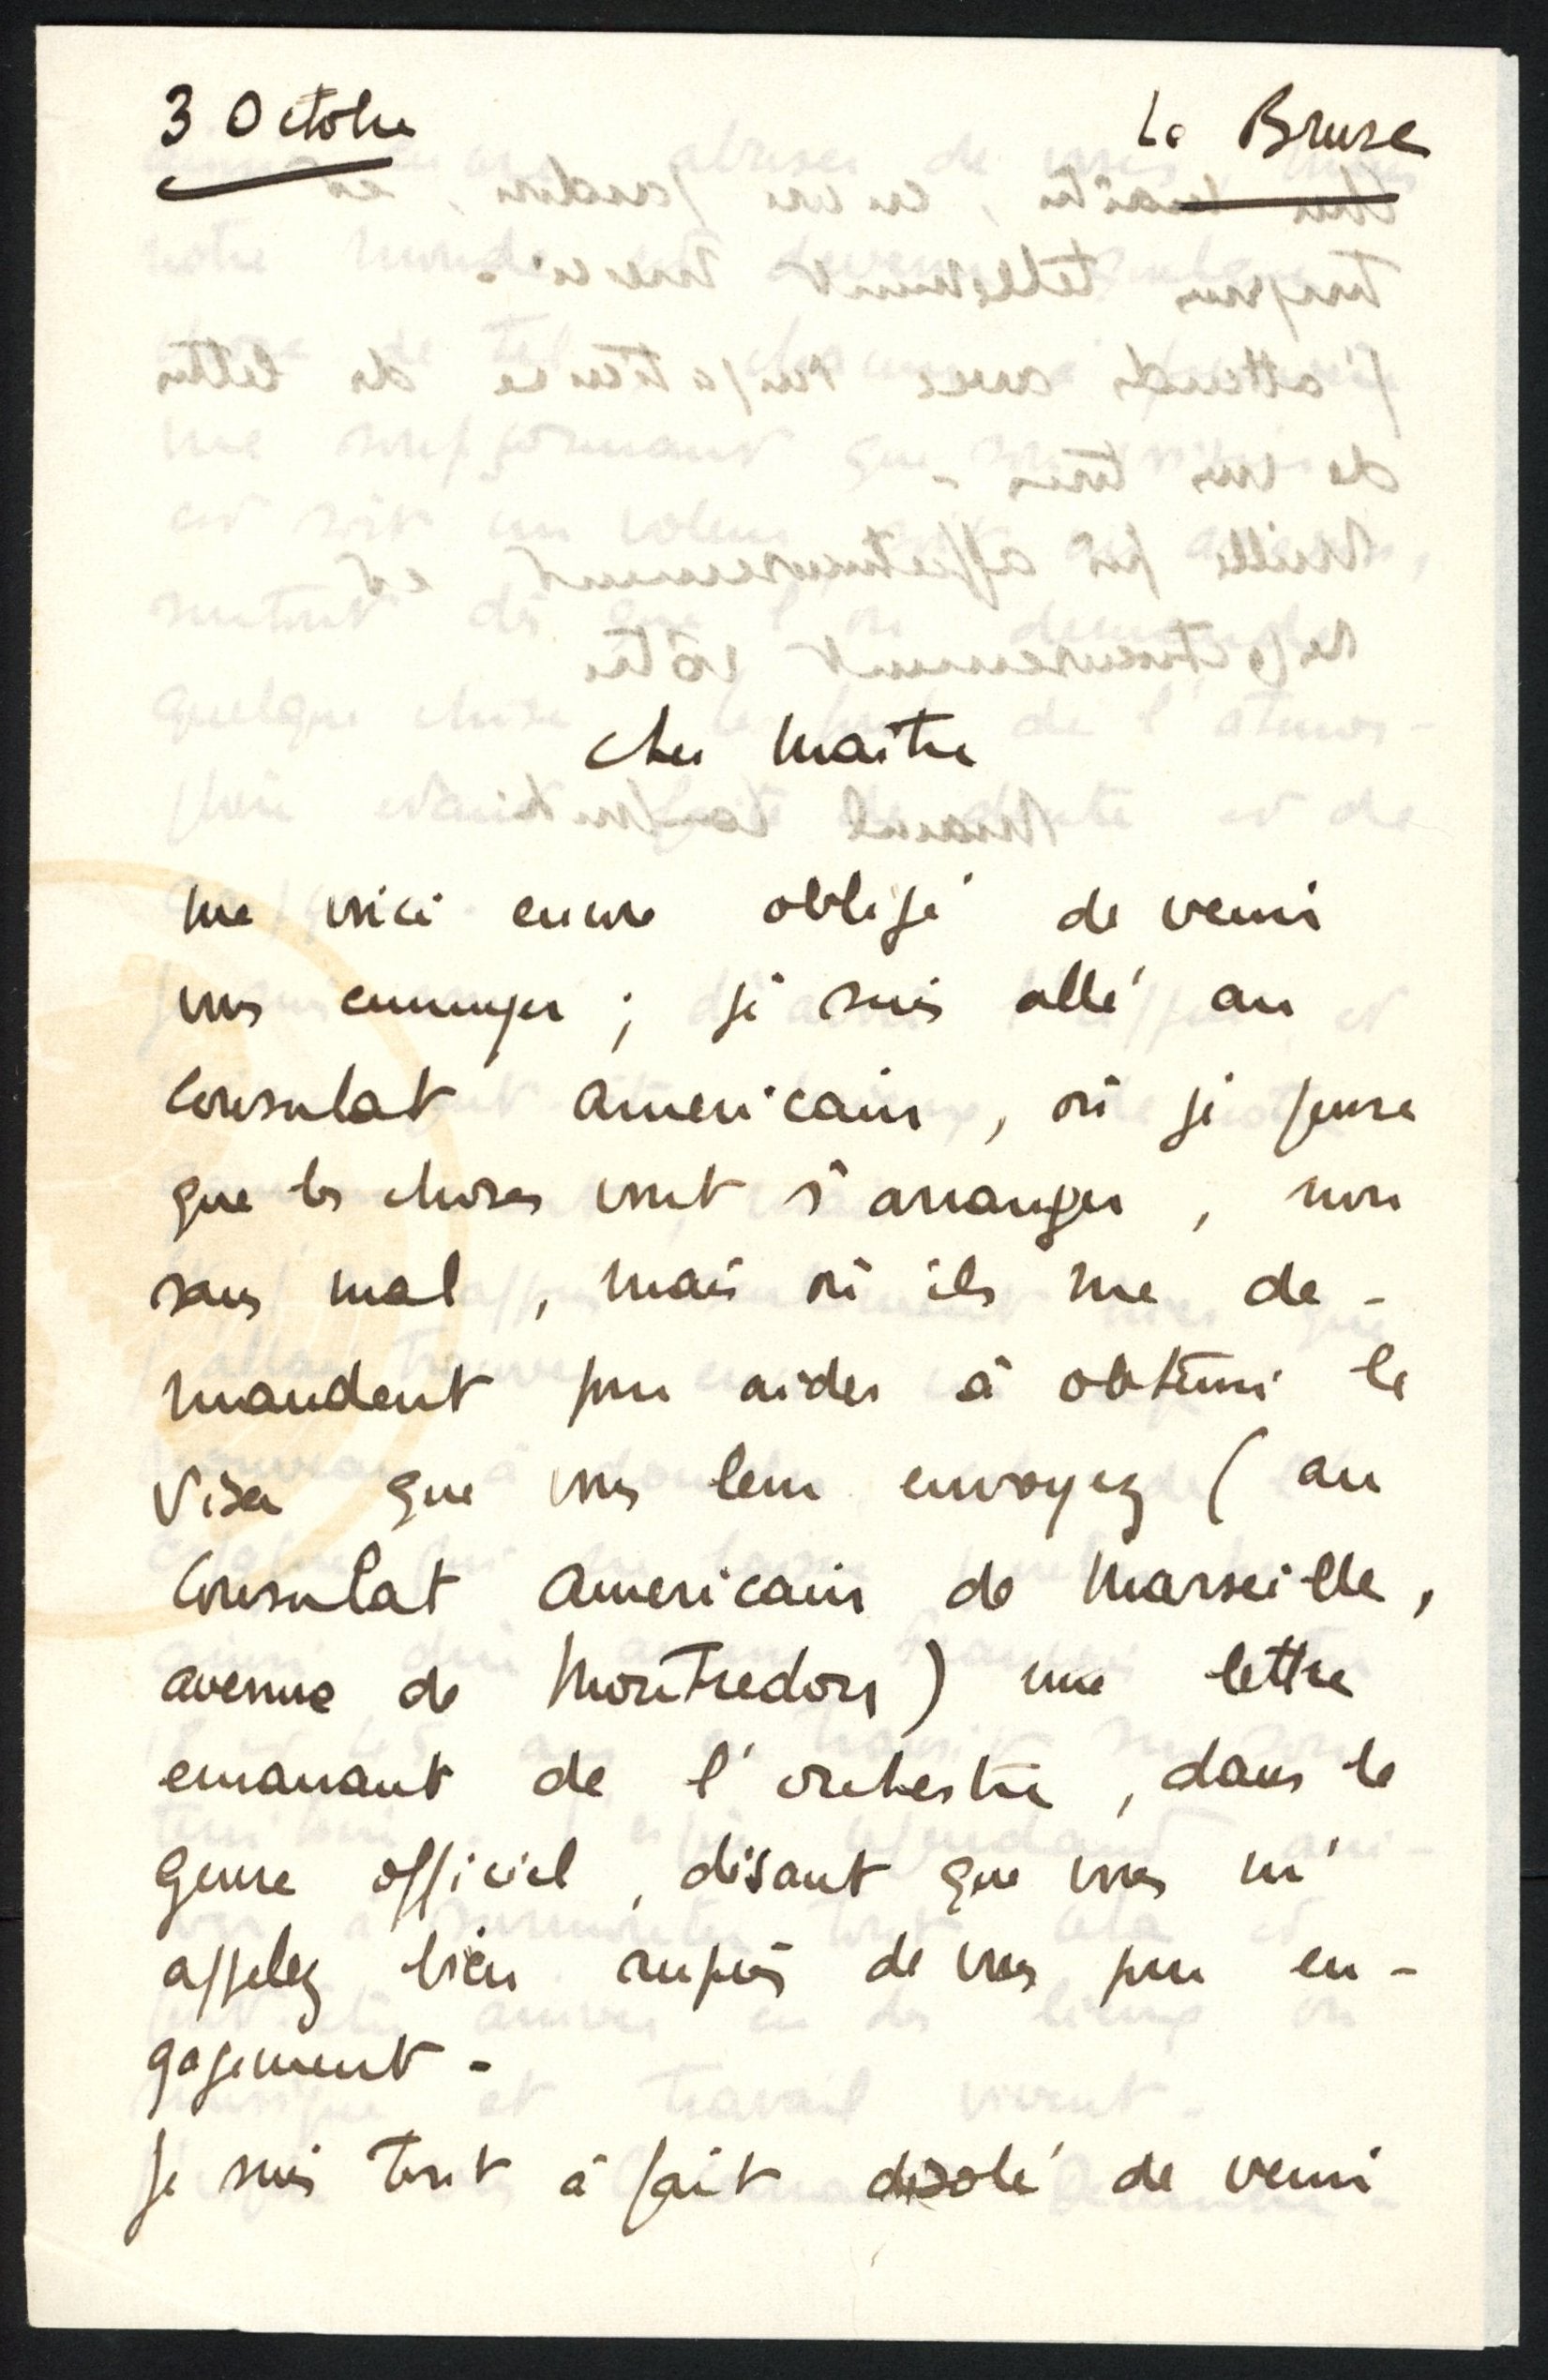 3 Octobre
Le Brusc
Cher Maître
me voici encore obligé de venir
vous ennuyer ; je suis allé au
Consulat americain, où je pense
que les choses vont s'arranger, non
sans mal, mais où ils me de-
mandent pour aider à obtenir le
visa que vous leur envoyez (au
Consulat americain de Marseille,
avenue de Montredon) une lettre
emanant de l'orchestre, dans le
genre officiel, disant que vous m'
appelez bien auprès de vous pour en-
gagement -
Je suis tout à fait desolé de venir